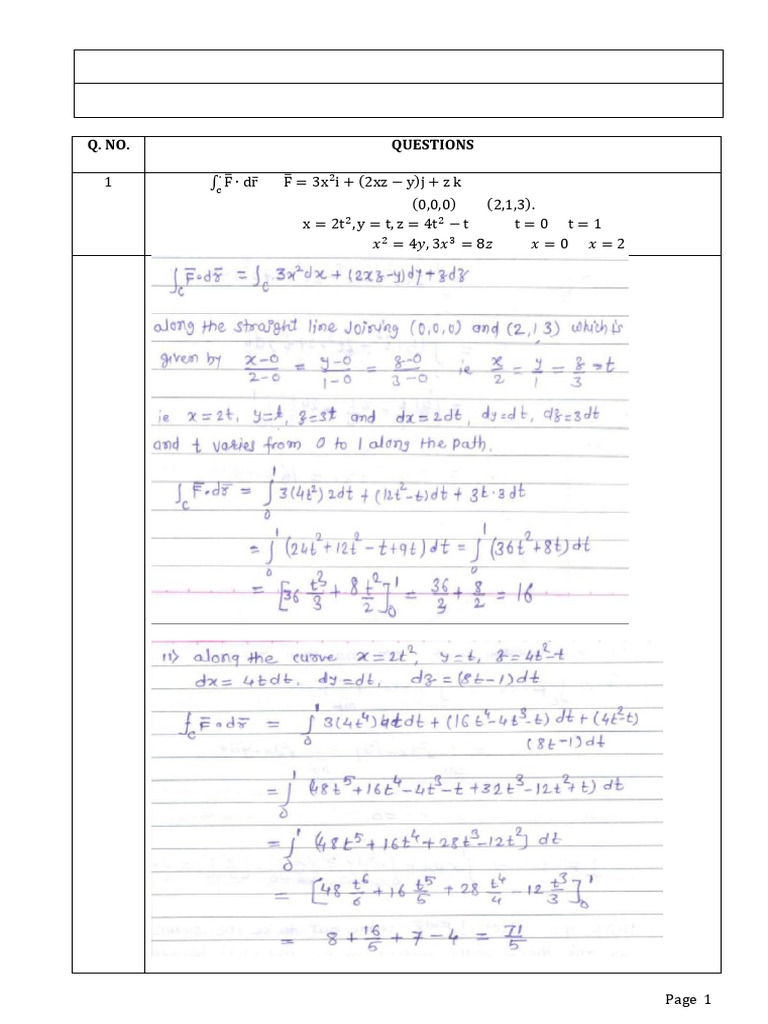 Q. NO. QUESTIONS
1 ∫_c F̄ · dr̄ F̄ = 3x²i + (2xz − y)j + z k
(0,0,0) (2,1,3).
x = 2t², y = t, z = 4t² − t t = 0 t = 1
x² = 4y, 3x³ = 8z x = 0 x = 2
∫_c F̄•dr̄ = ∫_c 3x²dx + (2xz-y)dy + zdz
along the straight line joining (0,0,0) and (2,1,3) which is
given by (x-0)/(2-0) = (y-0)/(1-0) = (z-0)/(3-0) ie x/2 = y/1 = z/3 = t
ie x=2t, y=t, z=3t and dx=2dt, dy=dt, dz=3dt
and t varies from 0 to 1 along the path.
∫_c F̄•dr̄ = ∫_0^1 3(4t²)2dt + (12t²-t)dt + 3t·3dt
= ∫_0^1 (24t²+12t²-t+9t)dt = ∫_0^1 (36t²+8t)dt
= [36 t³/3 + 8 t²/2]_0^1 = 36/3 + 8/2 = 16
ii) along the curve x=2t², y=t, z=4t²-t
dx= 4tdt, dy=dt, dz=(8t-1)dt
∫_c F̄•dr̄ = ∫_0^1 3(4t⁴)4tdt + (16t⁴-4t³-t)dt + (4t²-t)
(8t-1)dt
= ∫_0^1 (48t⁵+16t⁴-4t³-t+32t³-12t²+t) dt
= ∫_0^1 (48t⁵+16t⁴+28t³-12t²] dt
= [48 t⁶/6 + 16 t⁵/5 + 28 t⁴/4 - 12 t³/3]_0^1
= 8 + 16/5 + 7 - 4 = 71/5
Page 1